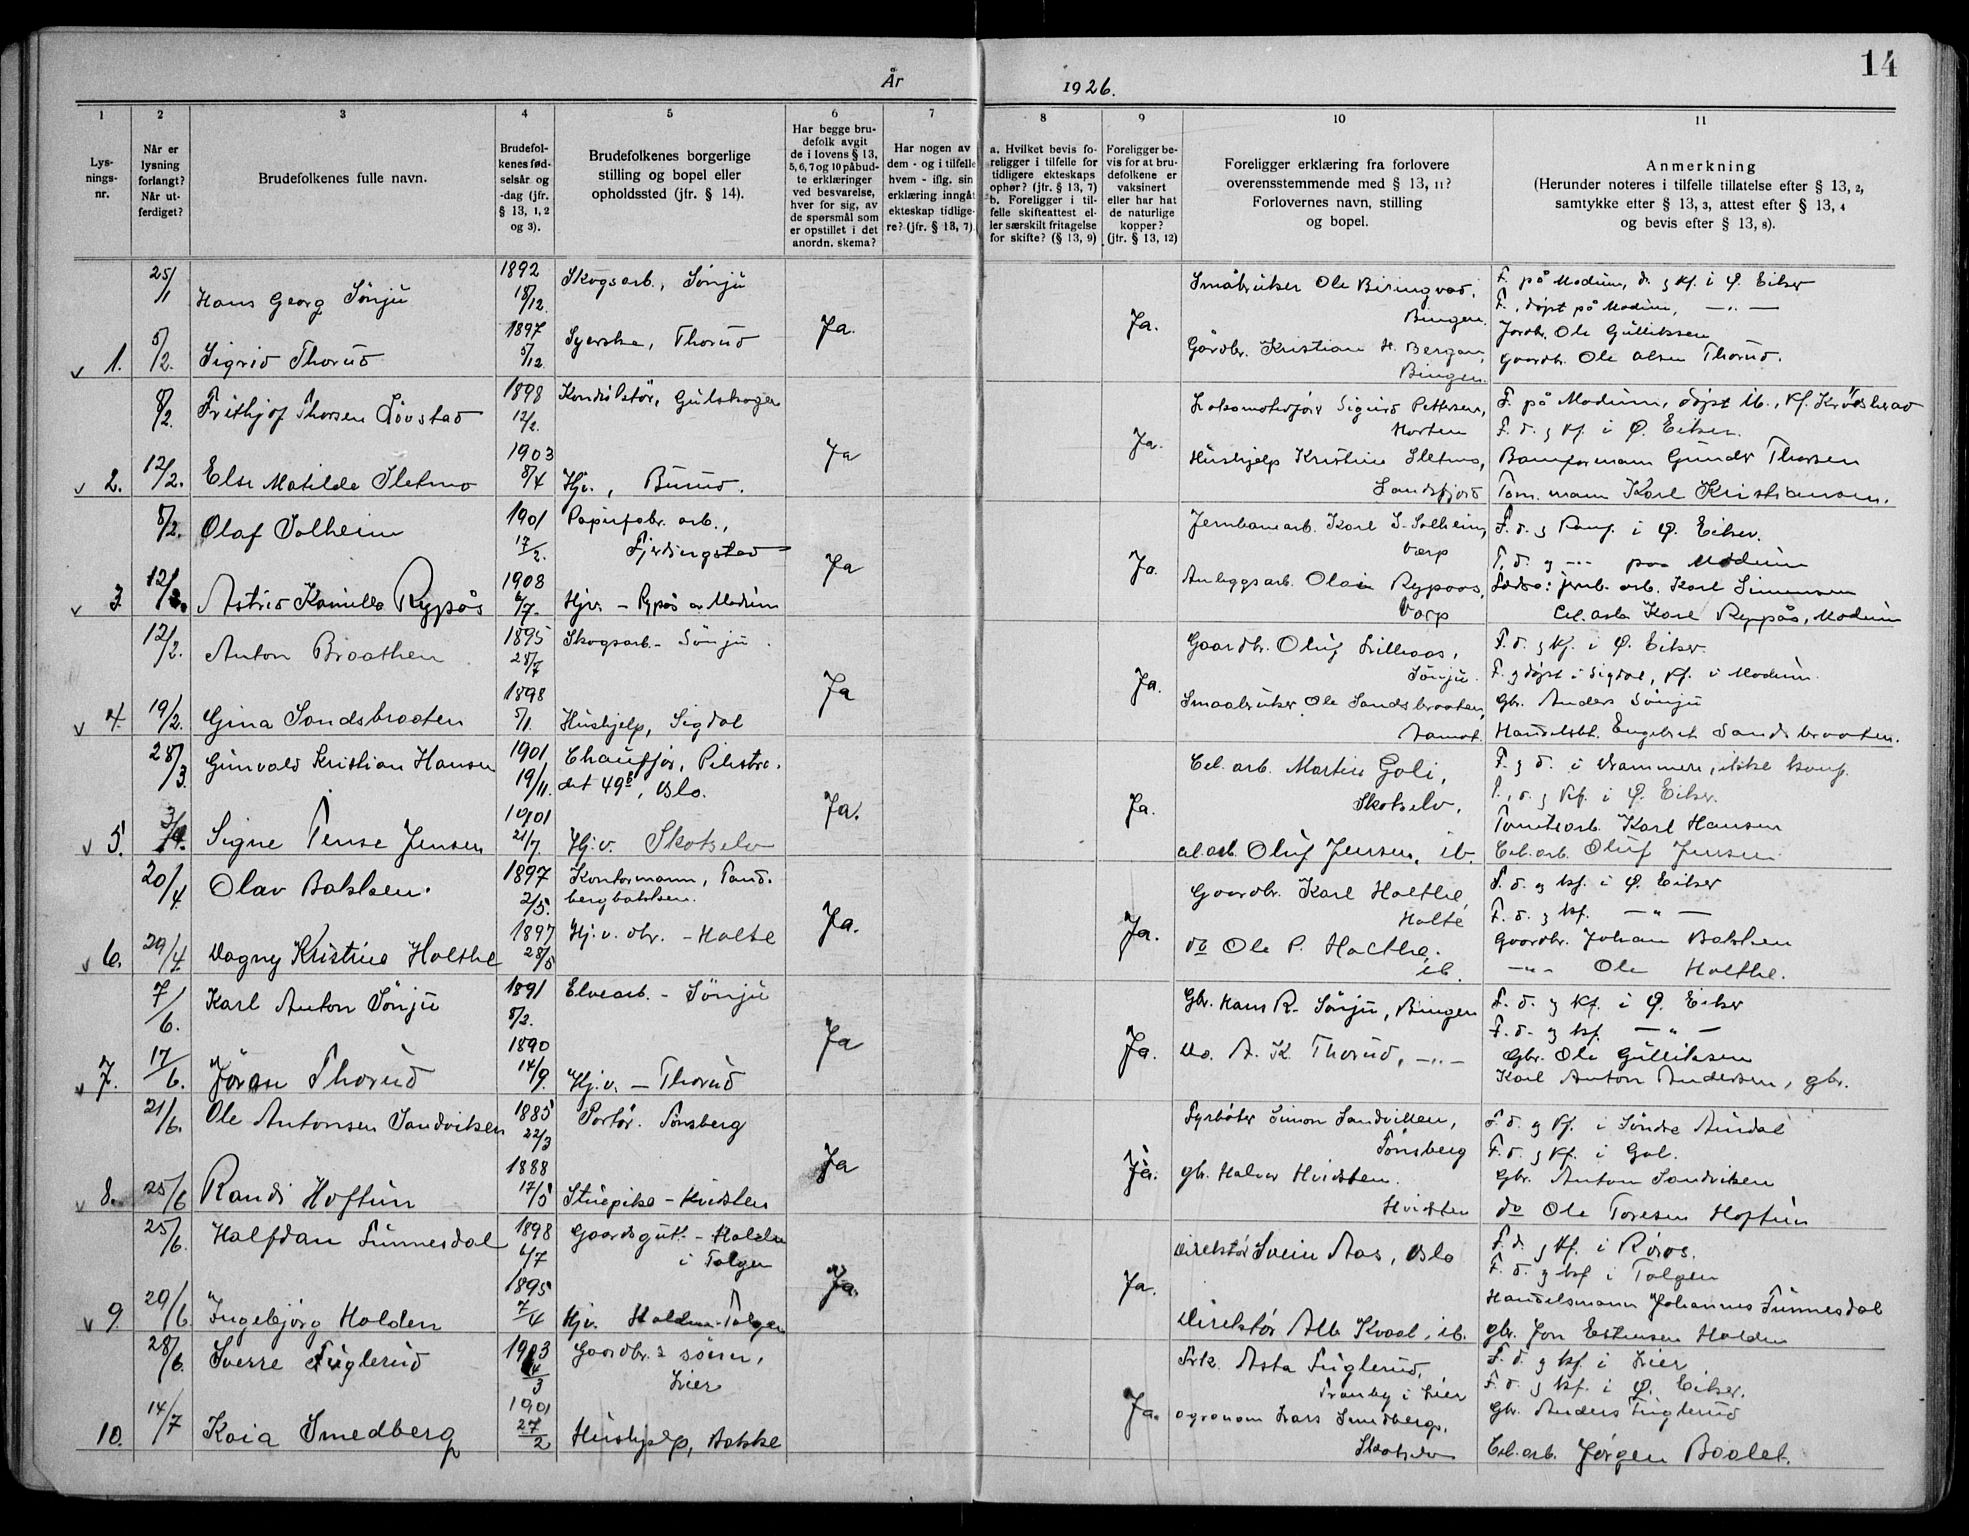 14
År 1926.
1 2 3 4 5 6 7 8 9 10 11
Lys-
nings-
nr.
Når er
lysning
forlangt?
Når ut-
ferdiget?
Brudefolkenes fulle navn.
Brudefol-
kenes fød-
selsår og
-dag (jfr.
§ 13, 1, 2
og 3).
Brudefolkenes borgerlige
stilling og bopel eller
opholdssted (jfr. § 14).
Har begge bru-
defolk avgit
de i lovens § 13,
5, 6, 7 og 10 påbud-
te erklæringer
ved besvarelse,
hver for sig, av
de spørsmål som
er opstillet i det
anordn. skema?
Har nogen av
dem - og i tilfelle
hvem - iflg. sin
erklæring inngåt
ekteskap tidlige-
re? (jfr. § 13, 7).
a. Hvilket bevis fo-
religger i tilfelle for
tidligere ekteskaps
ophør? (jfr. § 13, 7)
b. Foreligger i til-
felle skifteattest el-
ler særskilt fritagelse
for skifte? (§ 13, 9)
Foreligger be-
vis for at bru-
defolkene er
vaksinert
eller har hat
de naturlige
kopper?
(jfr. § 13, 12)
Foreligger erklæring fra forlovere
overensstemmende med § 13, 11?
Forlovernes navn, stilling
og bopel.
Anmerkning
(Herunder noteres i tilfelle tillatelse efter § 13, 2,
samtykke efter § 13, 3, attest efter § 13, 4
og bevis efter § 13, 8).
25/1 Hans Georg Sönju 1892 18/12. Skogsarb., Sönju Ja. Ja. Småbruker Ole Biringvad, Bingen. F. på Modum, d. g kf. i Ø. Eiker
F., döpt på Modum, —"—
v 1. 5/2. Sigrid Thorud 1897 5/12. Syerske, Thorud Gårdbr. Kristian H. Bergan, Bingen. Jordbr. Ole Gulliksen
Gaardbr. Ole Olsen Thorud.
8/2. Frithjof Thorsen Lövstad 1898 12/2. Konduktör, Gulskogen Ja Ja. Lokomotivförer Sigurd Pettersen, Horten F. på Modum, döpt ib., kf. Krödsherad
F. d. g kf. i Ø. Eiker.
v 2. 12/2. Else Matilde Sletmo 1903 8/4 Hjv., Burud. Hushjelp Kristine Sletmo, Sandsfjord Banformann Gunder Thorsen
Tom. mann Karl Kristiansen.
8/2. Olaf Solheim 1901 17/2. Papirfabr. arb., Fjerdingstad Ja Ja. Jernbanearb. Karl S. Solheim, Varp F. d. g konf. i Ø. Eiker.
F. d. g —"— paa Modum
v 3. 12/2. Astrid Kamilla Rypås 1908 6/7. Hjv. – Rypås av Modum Anleggsarb. Olai Rypaas, Varp Fædre: jernb. arb. Karl Simensen
Cel. arb. Karl Rypås, Modum
12/2. Anton Braathen 1895 28/7 Skogsarb. – Sönju. Ja Ja. Gaardbr. Oluf Lilleaas, Sönju. F. d. g kf. i Ø. Eiker.
F. g döpt i Sigdal, kf. i Modum.
v 4. 19/2. Gina Sandsbraaten 1898 5/1. Hushjelp, Sigdal Smaabruker Ole Sandsbraaten, Aamot. Gbr. Anders Sönju
Handelsbt. Engebret Sandsbraaten.
28/3. Gunvald Kristian Hansen 1901 19/11. Chauffør, Pilestre-
det 49B, Oslo. Ja. Ja. Cel. arb. Martin Goli, Skotselv, F. g d. i Drammen, ikke konf.
F., d. g kf. i Ø. Eiker.
v 5. 3/4. Signe Tense Jensen 1901 21/7 Hj. v. Skotselv cel. arb. Oluf Jensen, ib. Tomtearb. Karl Hansen
Cel. arb. Oluf Jensen
20/4. Olav Bakken. 1897 2/5. Kontormann, Tand-
bergbakken. Ja. Ja. Gaardbr. Karl Holthe, Holte F. d. og kf. i Ø. Eiker
F. d. g kf. —"—
v 6. 29/4. Dagny Kristine Holthe 1897 28/5 Hj. v. obr. – Holte do Ole P. Holthe, ib. Gaardbr. Johan Bakken
—"— Ole Holthe.
7/6. Karl Anton Sönju 1891 8/2. Elvearb. – Sönju Ja Ja. Gbr. Hans R. Sönju, Bingen F. d. g kf. i Ø. Eiker
F. d. g kf. —"—
v 7. 17/6. Jöran Thorud 1890 14/9. Hj. v. – Thorud Do. A. K. Thorud, —"— Gbr. Ole Gulliksen
Karl Anton Andersen, gbr.
21/6. Ole Antonsen Sandviken 1885 22/3 Portör. Tönsberg Ja Ja. Fyrböter Simon Sandviken, Tönsberg F. d. g kf. i Söndre Aurdal
F. d. g kf. i Gol.
v 8. 25/6 Randi Hoftun 1888 17/5 Stuepike – Hvidsten gb. Halvor Hvidsten. Hvidsten Gbr. Anton Sandviken
do Ole Toresen Hoftun
25/6. Halfdan Funnesdal 1898 6/7 Gaardsgut. – Holden i Tolgen Ja. Ja. Direktör Svein Aas, Oslo F. d. g kf. i Röros.
F. d. g kf i Tolgen
v 9. 29/6 Ingebjörg Holden 1895 7/4 Hjv. Holden-Tolgen Direktör Alb Kvaal, ib. Handelsmann Johannes Funnesdal
gbr. Jon Estensen Holden
28/6. Sverre Fuglerud 1903 4/3 Gaardbr.s sönn, Lier Ja. Frk. Asta Fuglerud, Tranby i Lier F. d. g kf. i Lier
F. d. g kf. i Ø. Eiker.
10. 14/7 Kaia Smedberg 1901 27/2 Hushjelp, Bakke agronom Lars Smedberg, Skotselv Gbr. Anders Fuglerud
Cel. arb. Jörgen Baalet.